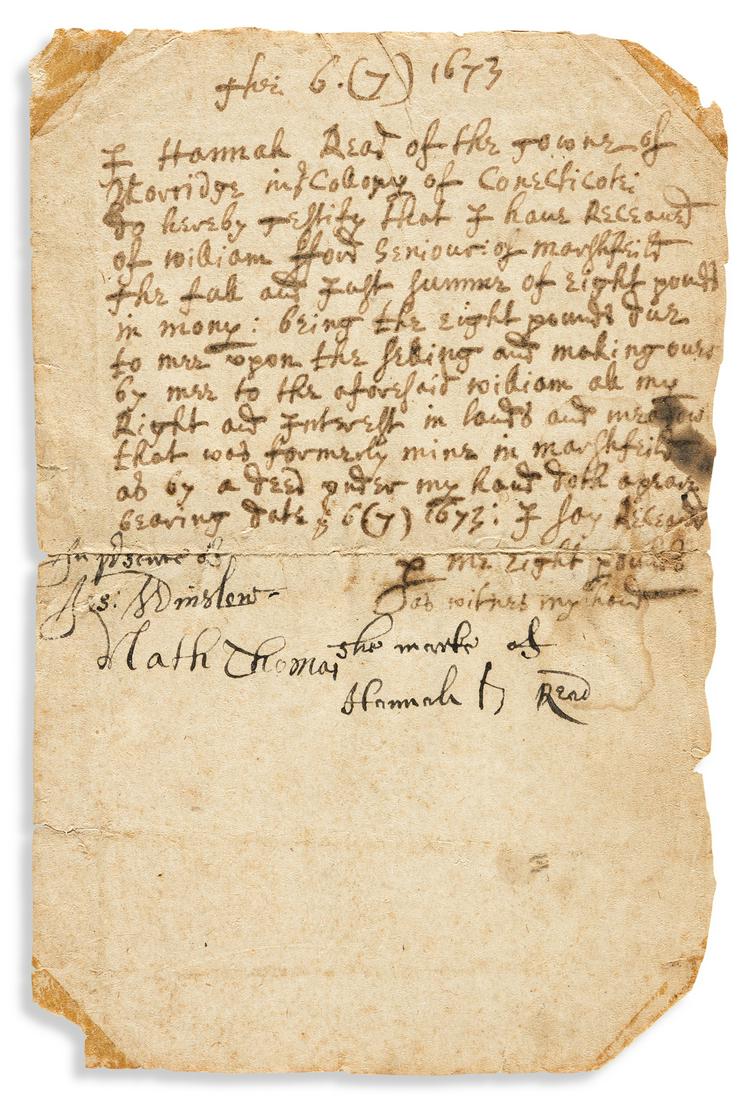 the: 6. (7) 1673
I Hannah Read of the towne of
Norridge in yᵉ Collony of Conecticote:
do hereby testify that I haue Receaued
of william fford Seniour: of marshfeild
the full and Just summe of eight pounds
in mony: being the eight pounds due
to mee vpon the selling and making ouer
by mee to the aforesaid william all my
Right and Interest in lands and meadow
that was formerly mine in marshfeild
as by a deed vnder my hand doth apeare
bearing date yᵉ 6 (7) 1673: I say Receaued
In psence of
p me eight pounds
Jos: Winslow
as witnes my hand
Nath Thomas
the marke of
Hannah H Read